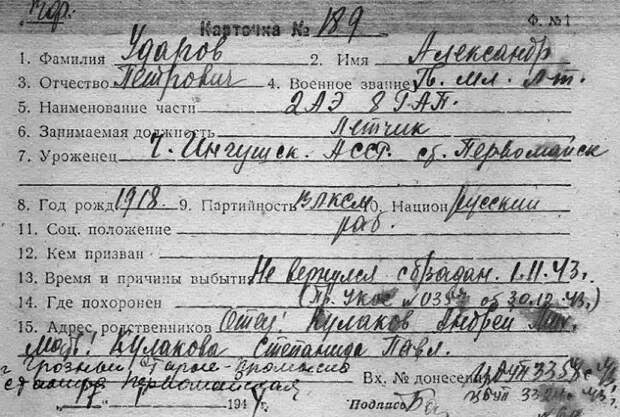 Карточка № 189 Ф. №1
1. Фамилия Ударов 2. Имя Александр
3. Отчество Петрович 4. Военное звание Гв. мл. л-т.
5. Наименование части 2АЭ 8 ГАП.
6. Занимаемая должность Летчик
7. Уроженец Ч. Ингушск. АССР. ст. Первомайск
8. Год рожд 1918. 9. Партийность ВЛКСМ 10. Национ Русский
11. Соц. положение раб.
12. Кем призван
13. Время и причины выбыти Не вернулся с б/задан. 1.11.43г.
14. Где похоронен (Пр. УКОС № от 30.12.43г.)
15. Адрес родственников Отец: Кулаков Андрей
Мать: Кулакова Степанида Павл.
г Грозный, Старые-Промысла
станица Первомайская Вх. № донесен
194 Подпись